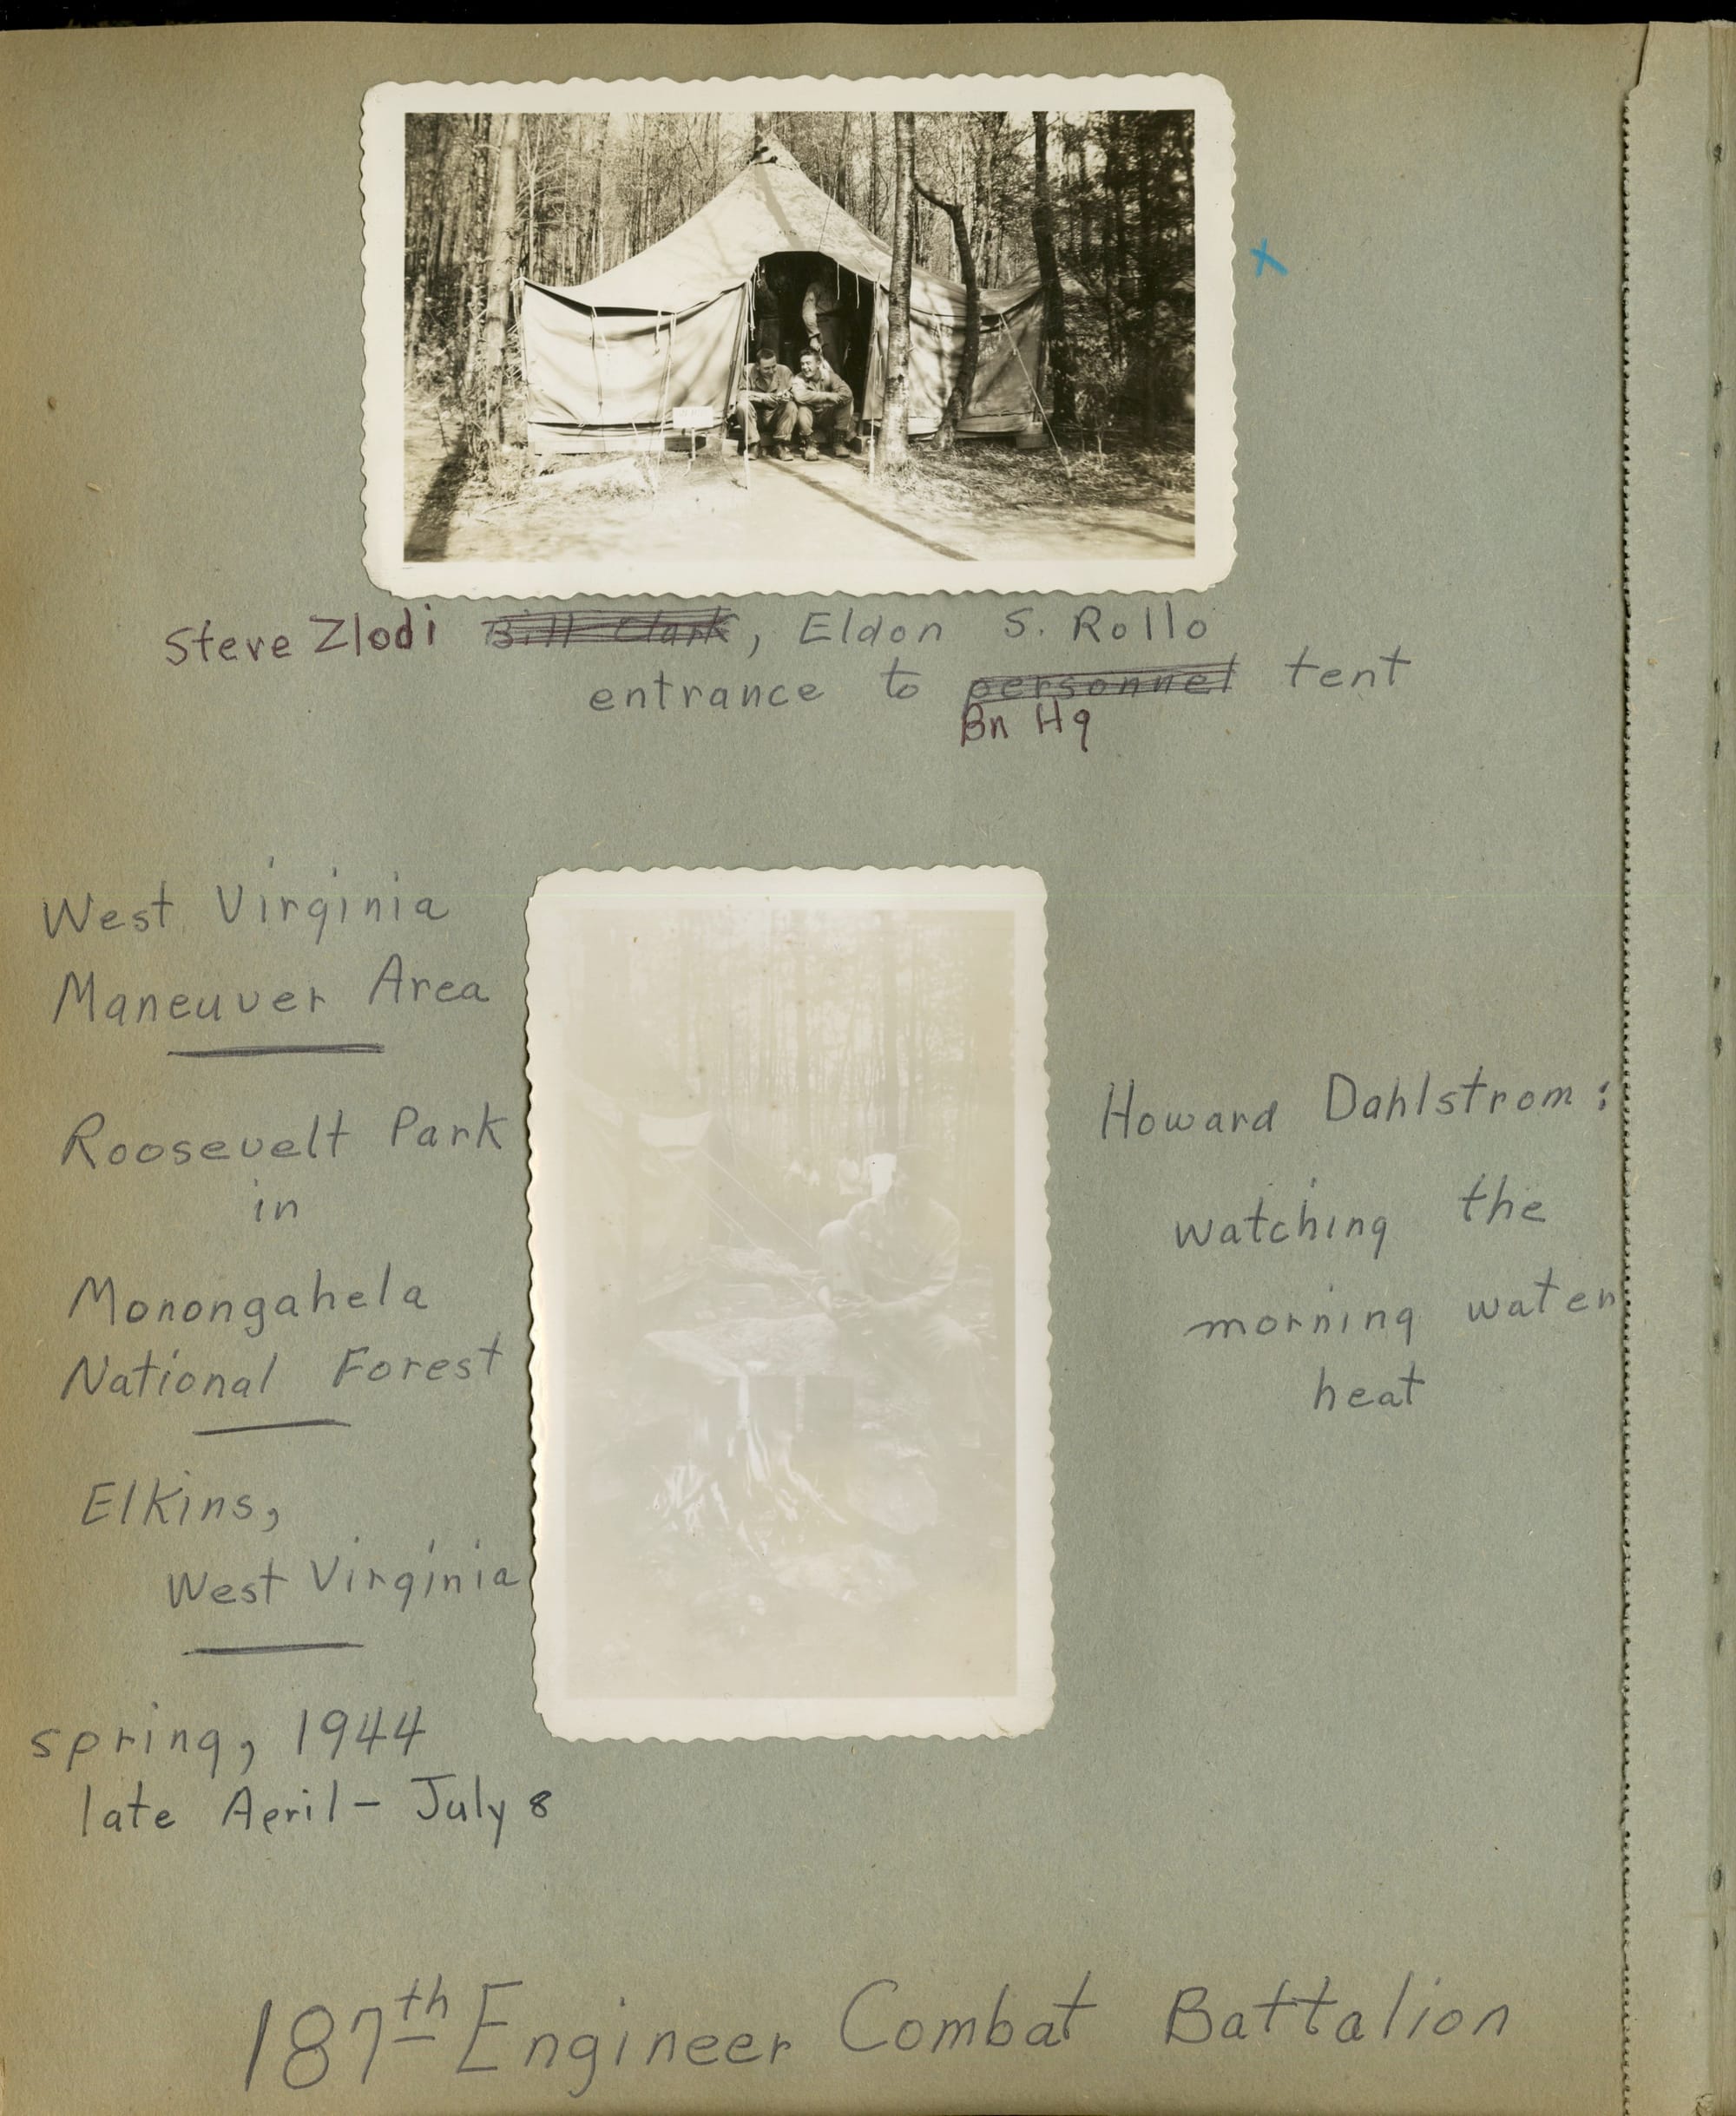 Steve Zlodi Bill Clark, Eldon S. Rollo
entrance to personnel tent
Bn Hq
West Virginia
Maneuver Area
Roosevelt Park
in
Monongahela
National Forest
Elkins,
West Virginia
spring, 1944
late April - July 8
Howard Dahlstrom:
watching the
morning water
heat
187th Engineer Combat Battalion